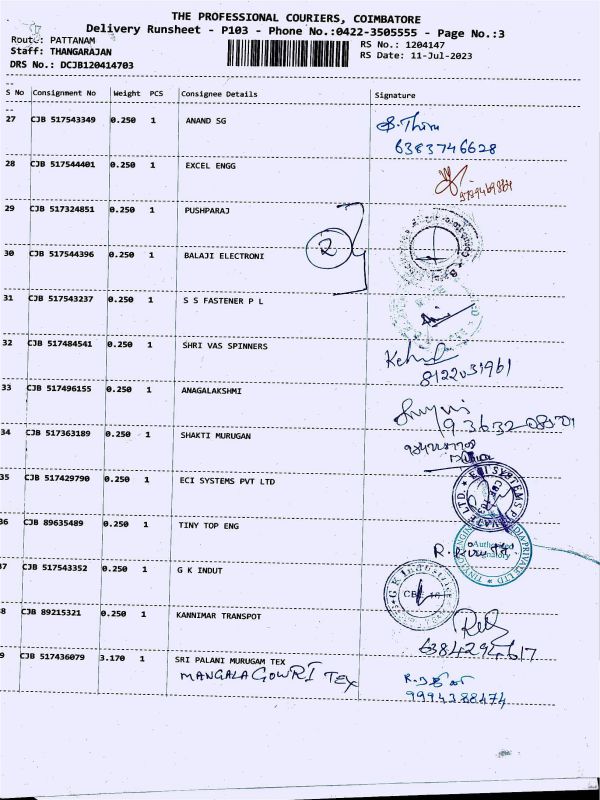 THE PROFESSIONAL COURIERS, COIMBATORE
Delivery Runsheet - P103 - Phone No.:0422-3505555 - Page No.:3
Route: PATTANAM
RS No.: 1204147
Staff: THANGARAJAN
RS Date: 11-Jul-2023
DRS No.: DCJB120414703
S No Consignment No Weight PCS Consignee Details Signature
27 CJB 517543349 0.250 1 ANAND SG
6383746628
28 CJB 517544401 0.250 1 EXCEL ENGG
29 CJB 517324851 0.250 1 PUSHPARAJ
2
30 CJB 517544396 0.250 1 BALAJI ELECTRONI
31 CJB 517543237 0.250 1 S S FASTENER P L
32 CJB 517484541 0.250 1 SHRI VAS SPINNERS
8122031961
33 CJB 517496155 0.250 1 ANAGALAKSHMI
34 CJB 517363189 0.250 1 SHAKTI MURUGAN
35 CJB 517429790 0.250 1 ECI SYSTEMS PVT LTD
ECI SYSTEMS PRIVATE LTD.
36 CJB 89635489 0.250 1 TINY TOP ENG
Authorised
37 CJB 517543352 0.250 1 G K INDUT
8 CJB 89215321 0.250 1 KANNIMAR TRANSPOT
9 CJB 517436079 3.170 1 SRI PALANI MURUGAM TEX
MANGALA GOWRI TEX
9994388474